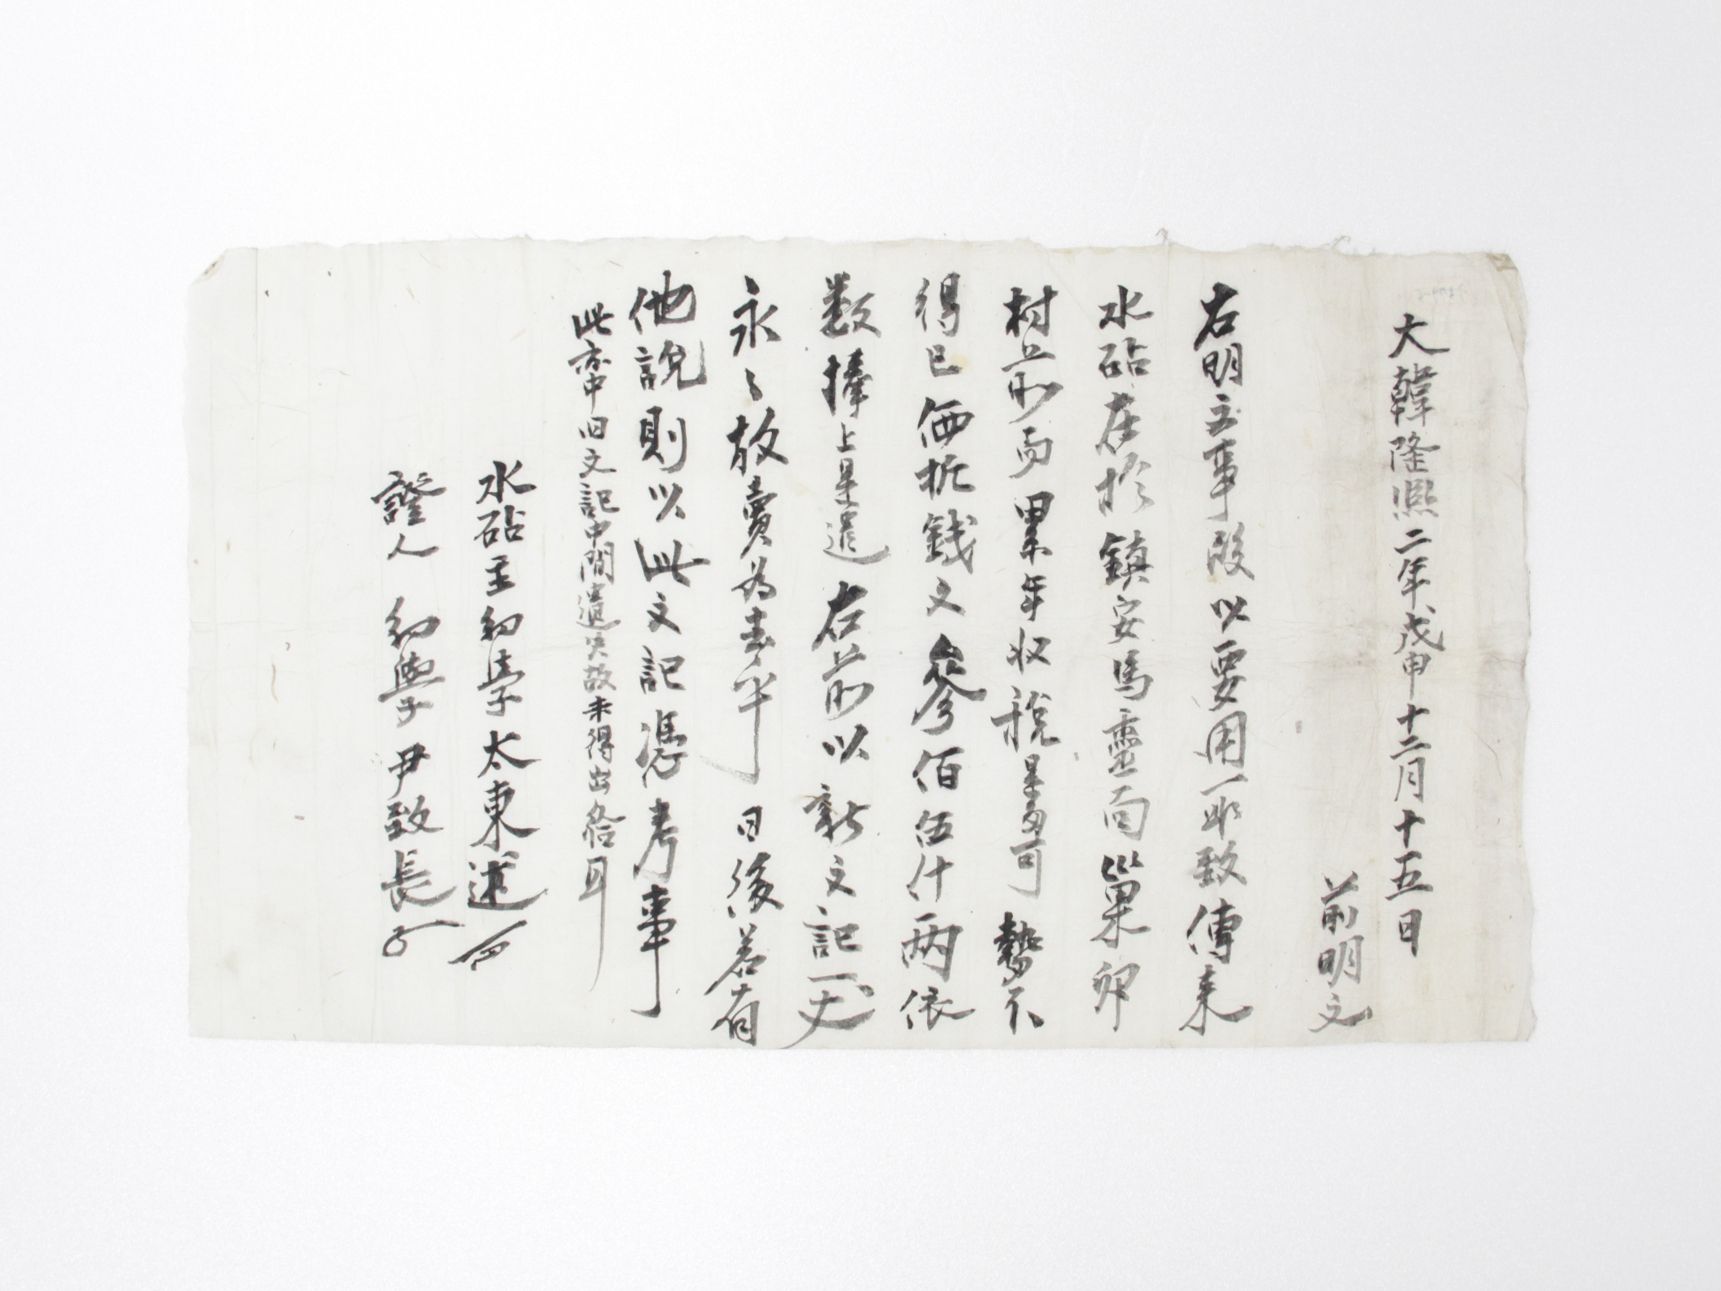 大韓隆熙二年戊申十二月十五日
前明文
右明文事段以要用所致傳來
水砧在於鎮安馬靈面巢卵
村前而累年收稅是多可勢不
得已価折錢文參佰伍什兩依
數捧上是遣右前以新文記一丈
永々放賣為去乎日後若有
他說則以此文記憑考事
此亦中旧文記中間遺失故未得出給耳
水砧主幼學太東述
證人 幼學尹致長